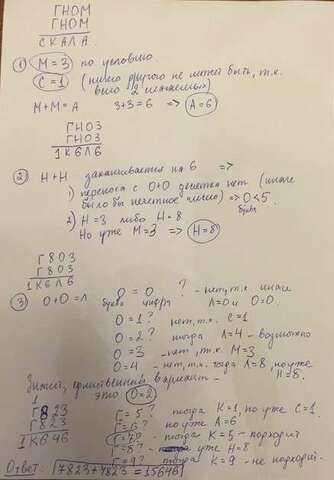 ГНОМ
ГНОМ
СКАЛА.
① М=3 по условию.
С=1 (ничего другого не может быть, т.к.
всего 2 слагаемых)
М+М=А 3+3=6 => А=6
ГНО3
ГНО3
1К6Л6
② Н+Н заканчивается на 6 =>
1) переноса с О+О десятка нет (иначе
было бы нечетное число) => О<5
буква
2) Н=3 либо Н=8
Но уже М=3 => Н=8
Г8О3
Г8О3
1К6Л6
③ О+О=Л О = 0 ? - нет, т.к. иначе
буква цифра Л=0 и О=0.
О=1? нет, т.к. С=1
О=2? тогда Л=4 - возможно
О=3 - нет, т.к. М=3
О=4 - нет, т.к. тогда Л=8, но уже
Н=8.
Значит, единственный вариант -
это О=2
1
Г823
Г823
1К646
Г=5? тогда К=1, но уже С=1
Г=6? но уже А=6
Г=7 - тогда К=5 - подходит
Г=8? - уже Н=8
Г=9? тогда К=9 - не подходит.
Ответ: 7823+7823=15646